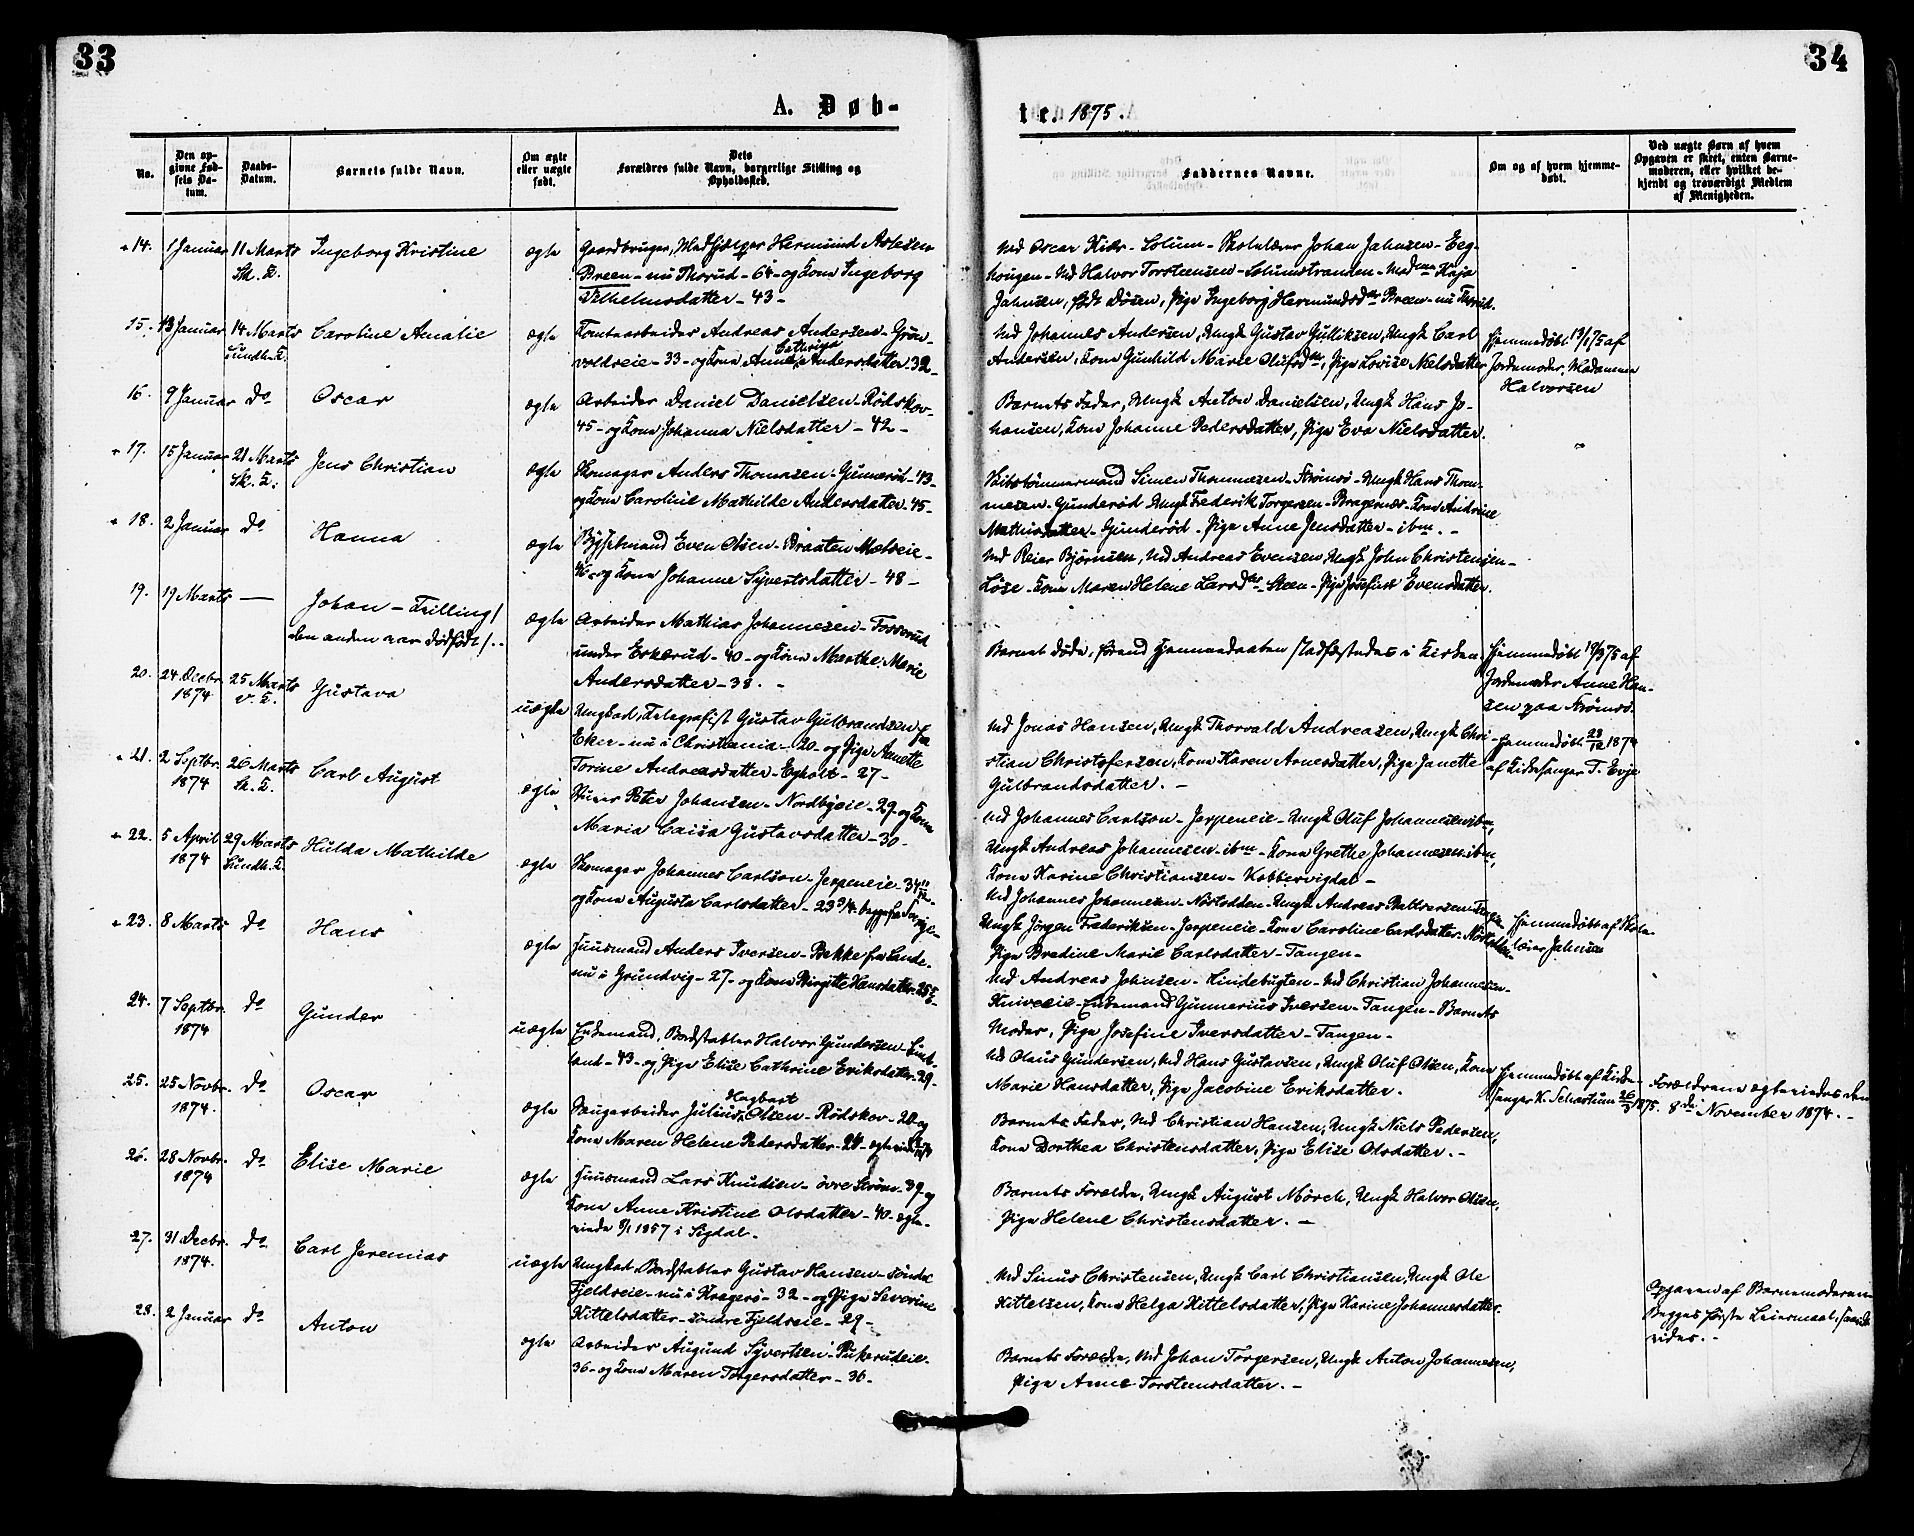 33
34
A. Døb-
te. 1875.
No.
Den op-
givne Fød-
sels Da-
tum.
Daabs-
Datum.
Barnets fulde Navn.
Om ægte
eller uægte
født.
Dets
Forældres fulde Navn, borgerlige Stilling og
Opholdssted.
Faddernes Navne.
Om og af hvem hjemme-
døbt.
Ved uægte Børn af hvem
Opgaven er skeet, enten Barne-
moderen, eller hvilket be-
kjendt og troværdigt Medlem
af Menigheden.
14. 1 Januar 11 Marts Ingeborg Kristine ægte
Sk. K.
Gaardbruger, Hermund Aslesen
Breen - nu Thorud - 64 - og Kone Ingeborg
Vilhelmsdatter - 43 -
Md Oscar Kiær - Solum - Skolelærer Johan Jahnsen - Eeg-
hougen - Md Halvor Torstensen - Solumstranden - Madme Kaja
Jahnsen, født Døsen, Pige Ingeborg Hermundsdtr Breen - nu Thorud.
15. 13 Januar 14 Marts Caroline Amalie ægte
Sundh. K.
Tomtearbeider Andreas Andersen - Grøn-
voldseie - 33 - og Kone Anne Cathrine Andersdatter 32 -
Md Johannes Andersen, Ungk Gustav Gulliksen, Ungk Carl
Andersen, Kone Gunhild Marie Olufsdtr, Pige Lovise Nielsdatter
Hjemmedøbt 13/1 75 af
Jordemoder, Madamme
Halvorsen
16. 9 Januar do Oscar ægte
Arbeider Daniel Danielsen - Rødskov -
45 - og Kone Johanna Nielsdatter - 42 -
Barnets Fader, Ungk Anton Danielsen, Ungk Hans Jo-
hansen, Kone Johanne Pedersdatter, Pige Eva Nielsdatter.
17. 15 Januar 21 Marts Jens Christian ægte
Sk. K.
Skomager Anders Thomasen - Gunnerød - 43 -
og Kone Caroline Mathilde Andersdatter - 45 -
Skibstømmermand Simen Thommesen - Strømsø - Ungk Hans Thom-
mesen - Gunderød - Ungk Frederik Torgersen - Bragernæs - Kone Andrine
Mathisdatter - Gunderød - Pige Anne Jensdatter - ibm. -
18. 2 Januar do Hanna ægte
Bygselmand Even Olsen - Braaten Moeseie -
og Kone Johanne Syvertsdatter - 48 -
Md Reier Bjørnsen, Md Andreas Evensen, Ungk John Christensen -
Løse - Kone Maren Helene Larsdtr - Steen - Pige Josefine Evensdatter.
19. 19 Marts — Johan - Tvilling/
den anden var dødfødt/. ægte
Arbeider Mathias Johannesen - Fosserud
under Eskerud - 40 - og Kone Marthe Marie
Andersdatter - 38. -
Barnet døde, førend Hjemmedaaben stadfæstedes i Kirken.
Hjemmedøbt 19/3 75 af
Jordemoder Anne Han-
sen paa Strømsø.
20. 24 Decbr. 1874 25 Marts Gustava uægte
v. K.
Ungkarl, Telegrafist Gustav Gulbrandsen fra
Eker - nu i Christiania - 20 - og Pige Annette
Torine Andreasdatter - Egholt - 27 -
Md Jonas Hansen, Ungk Thorvald Andreasen, Ungk Chri-
stian Christofersen, Kone Karen Arnesdatter, Pige Janette
Gulbrandsdatter. -
Hjemmedøbt 29/12 1874
af Kirkesanger T. Evje
21. 2 Septbr. 1874 26 Marts Carl August ægte
Sk. K.
Peter Johansen - Nordbyeie - 29 - og Kone
Maria Caisa Gustavsdatter - 30 -
Md Johannes Carlson - Jerpeneie - Ungk Oluf Johannesen ibm,
Ungk Andreas Johannesen - ibm - Kone Grethe Johannesen - ibm,
Kone Karine Christiansen - Kobbervigdal -
22. 5 April 1874 29 Marts Hulda Mathilde ægte
Sundh. K.
Skomager Johannes Carlson - Jerpeneie - 34
og Kone Augusta Carlsdatter - 23
Md Johannes Johannesen - Ungk Andreas
Ungk Jørgen Frederiksen - Jerpeneie - Kone Caroline Carlsdatter -
Pige Bredine Marie Carlsdatter - Tangen -
Hjemmedøbt af Skole-
lærer Jahnsen
23. 8 Marts do Hans ægte
Huusmand Anders Iversen - Bekke fra Lande -
nu i Grundvig - 27 - og Kone Birgitte Hansdatter
Md Andreas Johnsen - Hindebugten - Md Christian Johannesen -
Kniveeie - Enkemand Gunnerius Iversen - Tangen - Barnets
Moder, Pige Josefine Iversdatter - Tangen -
24. 7 Septbr. 1874 do Gunder uægte
Enkemand, Bordstabler Halvor Gundersen -
land - 43 - og Pige Elise Cathrine Eriksdatter - 29 -
Md Olaus Gundersen, Md Hans Gustavsen, Ungk Oluf Olsen, Kone
Marie Hansdatter, Pige Jacobine Eriksdatter.
Hjemmedøbt af Kirke-
sanger K. 1875.
Forældrene ægteviedes den
8de November 1874. -
25. 25 Novbr. 1874. do Oscar ægte
Saugarbeider Julius Hagbart Olsen - Rødskov - 20 og
Kone Maren Helene Pedersdatter - 24 -
Barnets Fader, Md Christian Hansen, Ungk Niels Pedersen,
Kone Dorthea Christensdatter, Pige Elise Olsdatter. -
26. 28 Novbr. 1874 do Elise Marie ægte
Huusmand Lars Knudsen - øvre Strøm - 39 og
Kone Anne Kristine Olsdatter - 40 - ægte-
viede 8/1 1857 i Sigdal.
Barnets Forældre, Ungk August Mørch, Ungk Halvor Olsen,
Pige Helene Christensdatter. -
27. 31 Decbr. 1874. do Carl Jeremias uægte
Ungkarl, Bordstabler Gustav Hansen - søndre
Fjeldseie - nu i Kragerø - 32 - og Pige Severine
Kittelsdatter - søndre Fjeldseie - 29 -
Md Sinus Christensen, Ungk Carl Christiansen, Ungk Ole
Kittelsen, Kone Helga Kittelsdatter, Pige Karine Johannesdatter.
Opgaven af Barnemoderen.
Begges første Leiermaal,
vides. -
28. 2 Januar do Anton ægte
Arbeider Augund Syvertsen - Pukerudeie -
36 - og Kone Maren Torgersdatter - 36 -
Barnets Forældre, Md Johan Torgersen, Ungk Anton Johannesen,
Pige Anne Torstensdatter. -